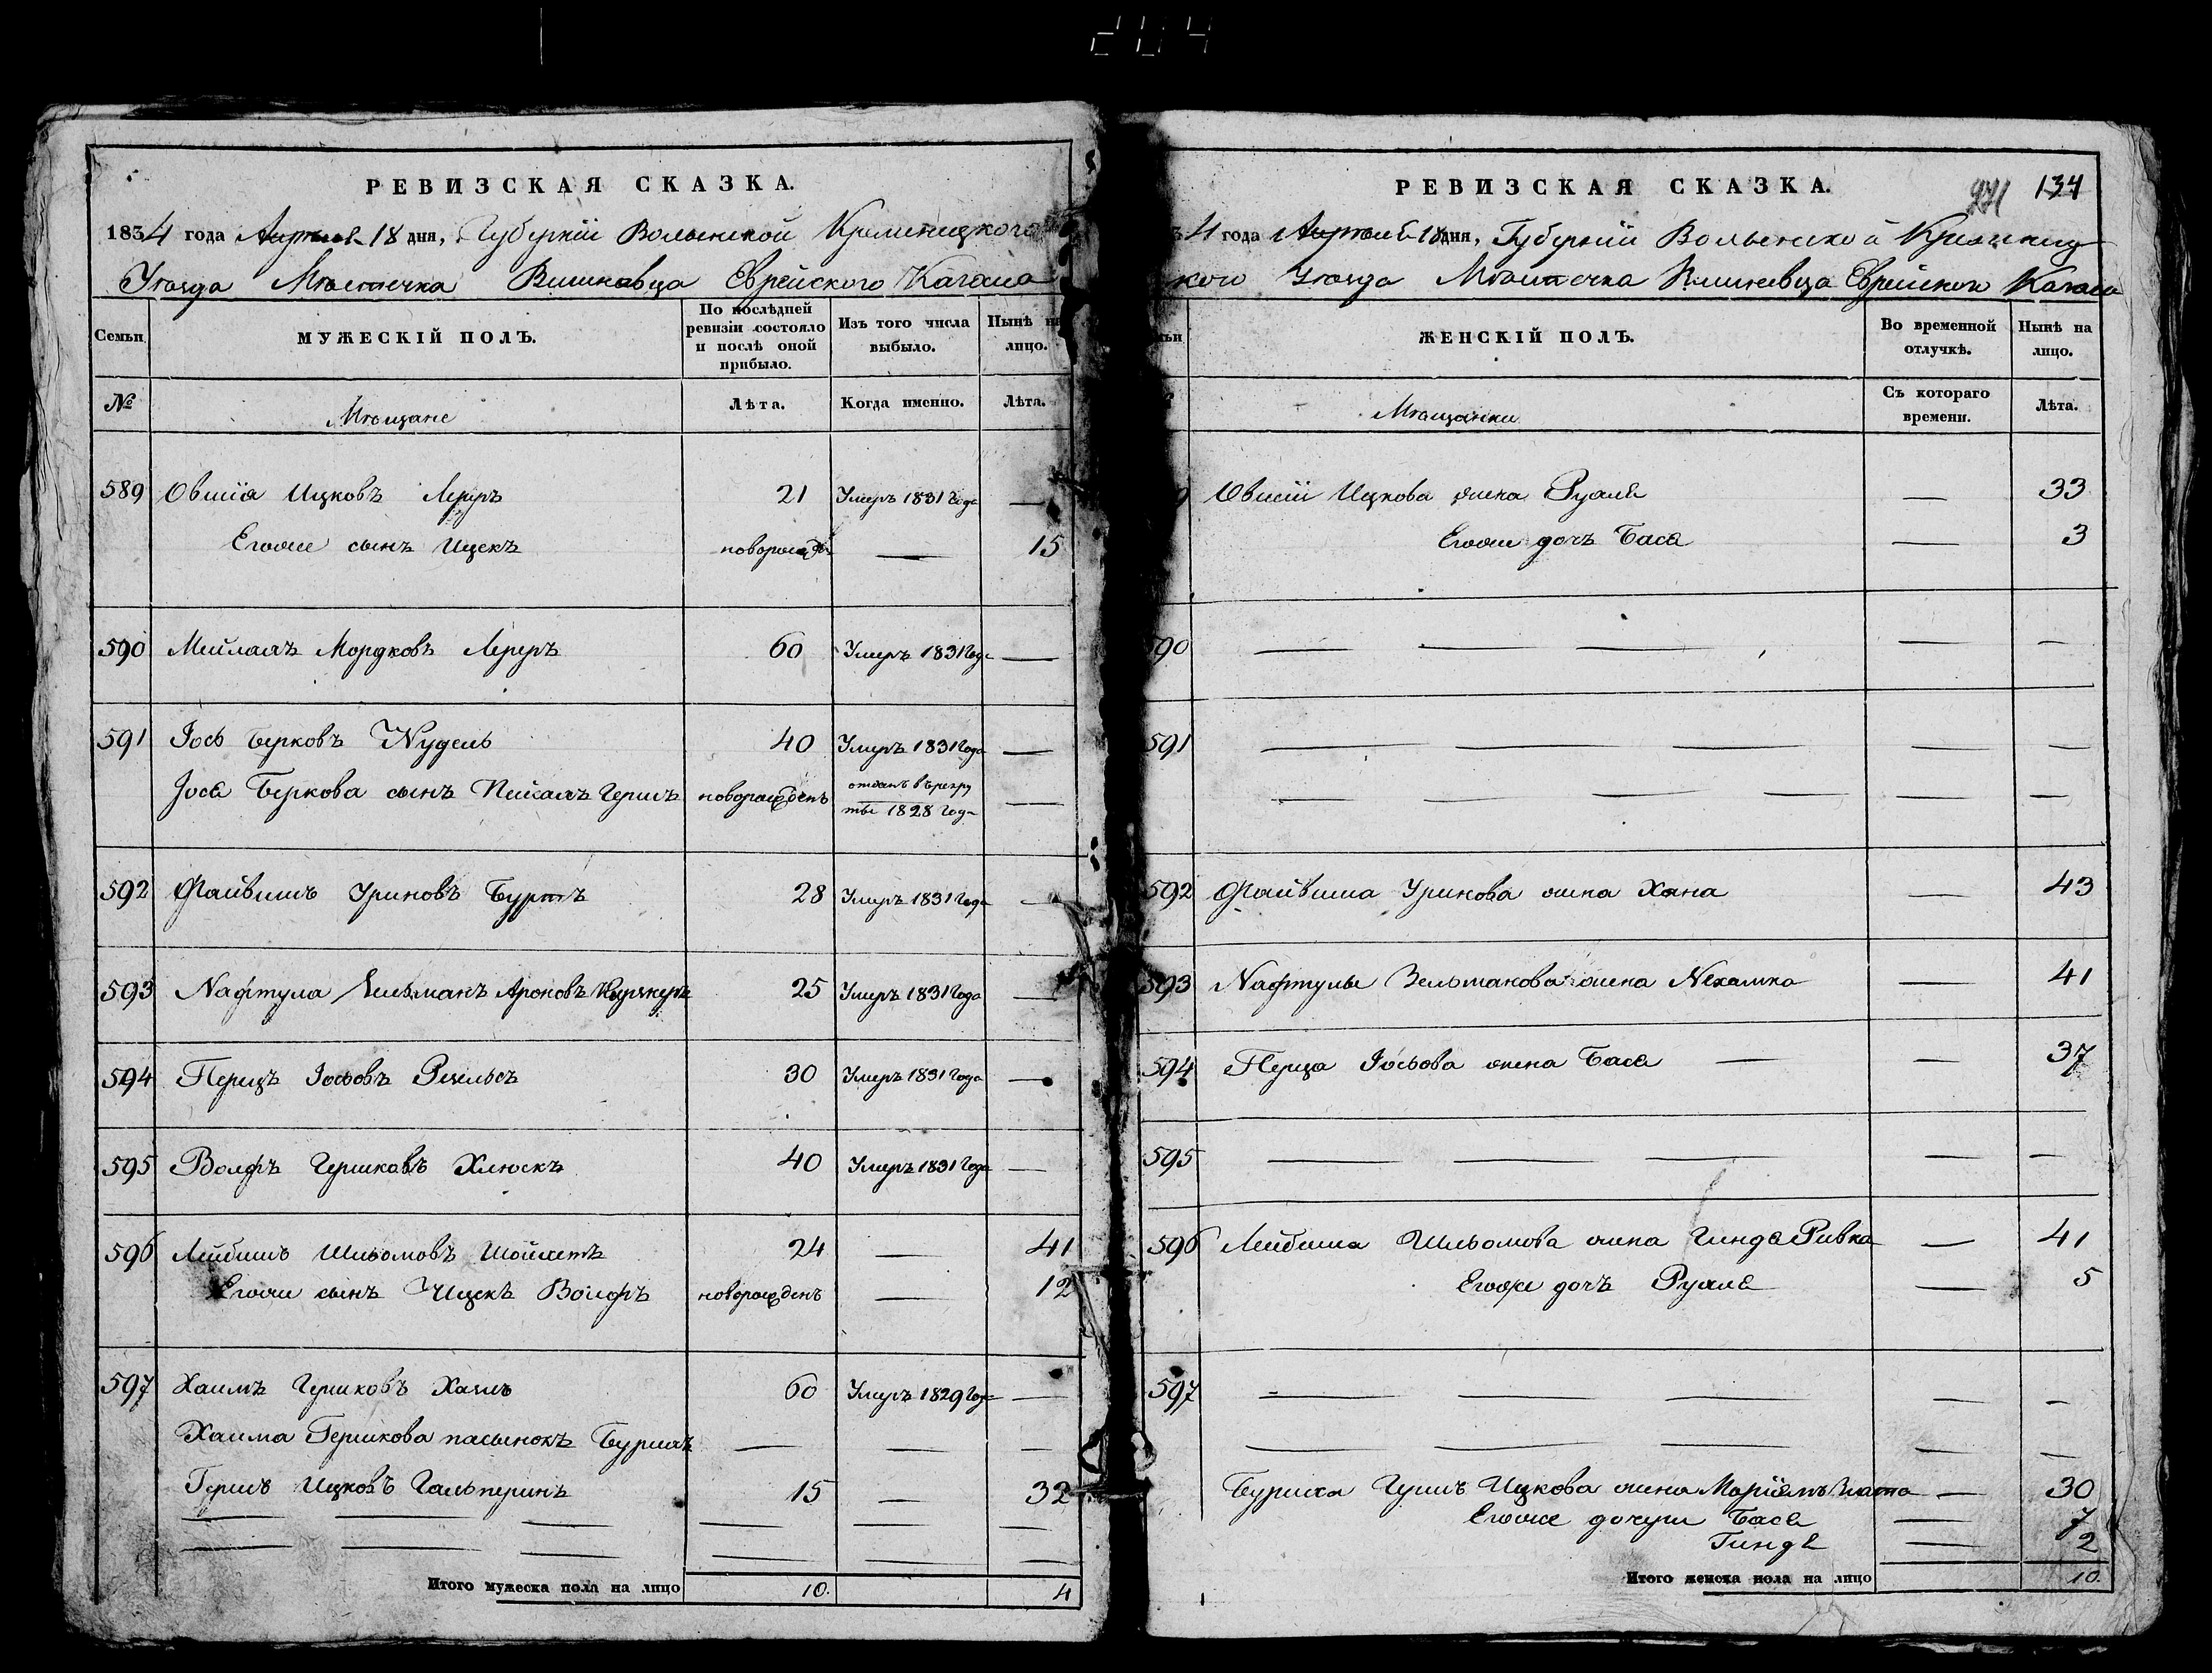 204
РЕВИЗСКАЯ СКАЗКА.
1834 года Апреля 18 дня, Губерніи Волынской Кременецкого
Уѣзда Мѣстечка Вишневца Еврейского Кагала
Семьи
МУЖЕСКІЙ ПОЛЪ.
По послѣдней ревизіи состояло и послѣ оной прибыло.
Изъ того числа выбыло.
Нынѣ на лицо.
№
Мѣщане
Лѣта.
Когда именно.
Лѣта.
589 Овшія Ицковъ Лереръ 21 Умеръ 1831 Года —
Егоже сынъ Ицекъ новорожд — 15
590 Мейламъ Мордковъ Лереръ 60 Умеръ 1831 Года —
591 Іось Берковъ Нудель 40 Умеръ 1831 Года —
Іося Беркова сынъ Гершъ новорожденъ отданъ въ рекру
ты 1828 Года —
592 Файвишъ Уриновъ Буртъ 28 Умеръ 1831 Года —
593 Нафтула Зельманъ Ароновъ 25 Умеръ 1831 Года —
594 Перецъ Іосьовъ 30 Умеръ 1831 Года —
595 Волфъ Гершковъ 40 Умеръ 1831 Года —
596 Лейбишъ Шльомовъ 24 — 41
Егоже сынъ Ицекъ Волфъ новорожденъ — 12
597 Хаимъ Гершковъ 60 Умеръ 1829 Года —
Хаима Гершкова пасынокъ — — —
Гершъ Ицковъ Гальперинъ 15 — 32
Итого мужеска пола на лицо 10. 4
РЕВИЗСКАЯ СКАЗКА.
271 134
4 года Апреля 18 дня, Губерніи Волынской Кременец
кого Уѣзда Мѣстечка Вишневца Еврейского Кагала
ЖЕНСКІЙ ПОЛЪ.
Во временной отлучкѣ.
Нынѣ на лицо.
Мѣщанки
Съ котораго времени.
Лѣта.
Овшіи Ицкова жена Рухля — 33
Егоже дочь Бася — 3
590 — — — — —
591 — — — — —
— — — — — —
592 Файвиша Уринова жена Хана — 43
593 Нафтулы Зельманова жена Нехамка — 41
594 Перца Іосьова жена Бася — — 37
595 — — — — —
596 Лейбиша Шльомова жена Гиндя Ривка — 41
Егоже дочь Рухля — 5
597 — — — — —
— — — — —
Гершъ Ицкова жена — 30
Егоже дочери Бася — 7
Гиндя — 2
Итого женска пола на лицо 10.